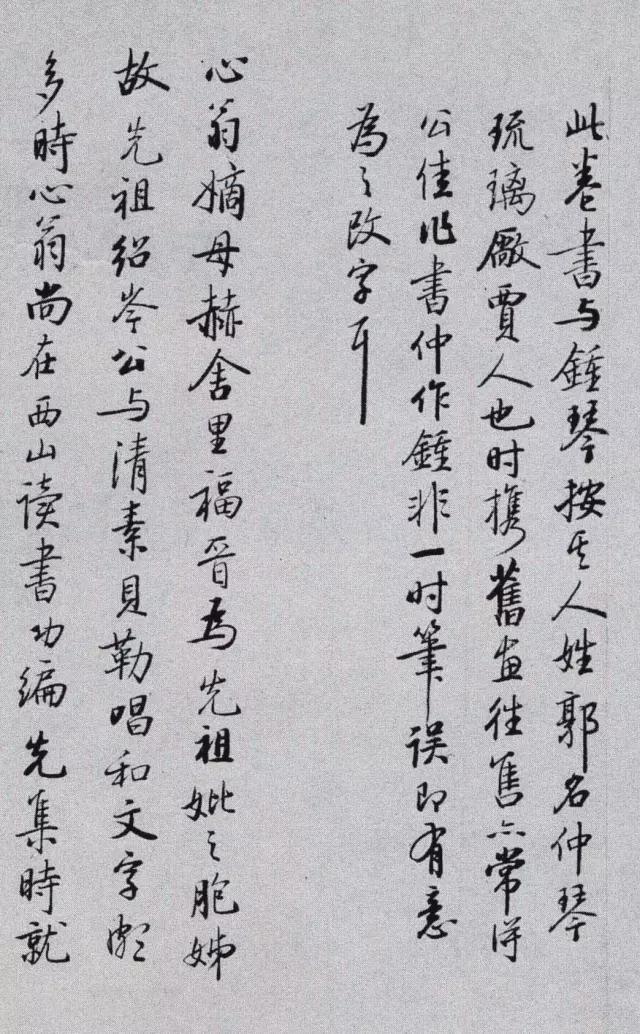 此卷書与鍾琴按其人姓郭名仲琴
琉璃廠賈人也时携舊畫往售亦常得
公佳作書仲作鍾非一时筆误即有意
為之改字耳
心翁嫡母赫舍里福晉為先祖妣之胞姊
故先祖绍岑公与清素貝勒唱和文字頗
多時心翁尚在西山读書功编先集時就